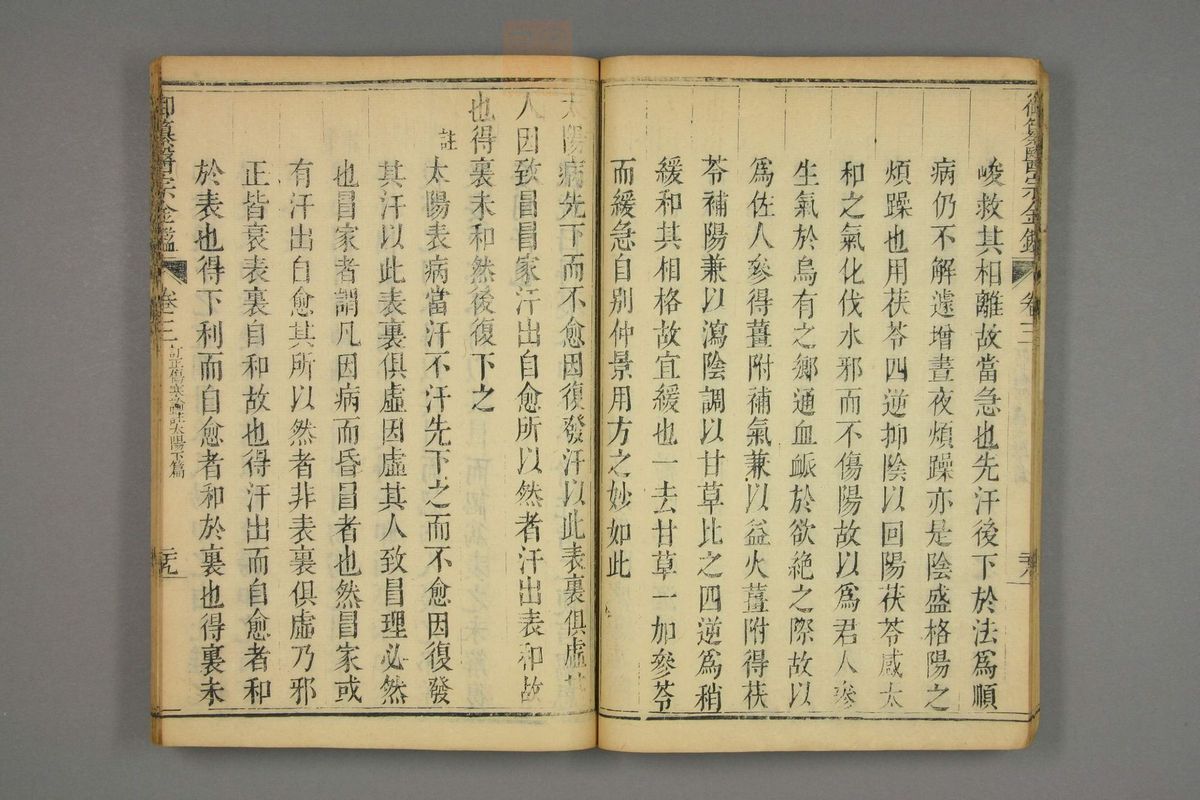 御纂醫宗金鑑
卷三
二十八
峻救其相離故當急也先汗後下於法爲順
病仍不解遽增晝夜煩躁亦是陰盛格陽之
煩躁也用茯苓四逆抑陰以回陽茯苓感太
和之氣化伐水邪而不傷陽故以爲君人參
生氣於烏有之鄉通血衇於欲絶之際故以
爲佐人參得薑附補氣兼以益火薑附得茯
苓補陽兼以瀉陰調以甘草比之四逆爲稍
緩和其相格故宜緩也一去甘草一加參苓
而緩急自別仲景用方之妙如此
太陽病先下而不愈因復發汗以此表裏俱虛其
人因致冒冒家汗出自愈所以然者汗出表和故
也得裏未和然後復下之
註
太陽表病當汗不汗先下之而不愈因復發
其汗以此表裏俱虛因虛其人致冒理必然
也冒家者謂凡因病而昏冒者也然冒家或
有汗出自愈其所以然者非表裏俱虛乃邪
正皆衰表裏自和故也得汗出而自愈者和
於表也得下利而自愈者和於裏也得裏未
御纂醫宗金鑑
卷三
訂正傷寒論註太陽下篇
二十九